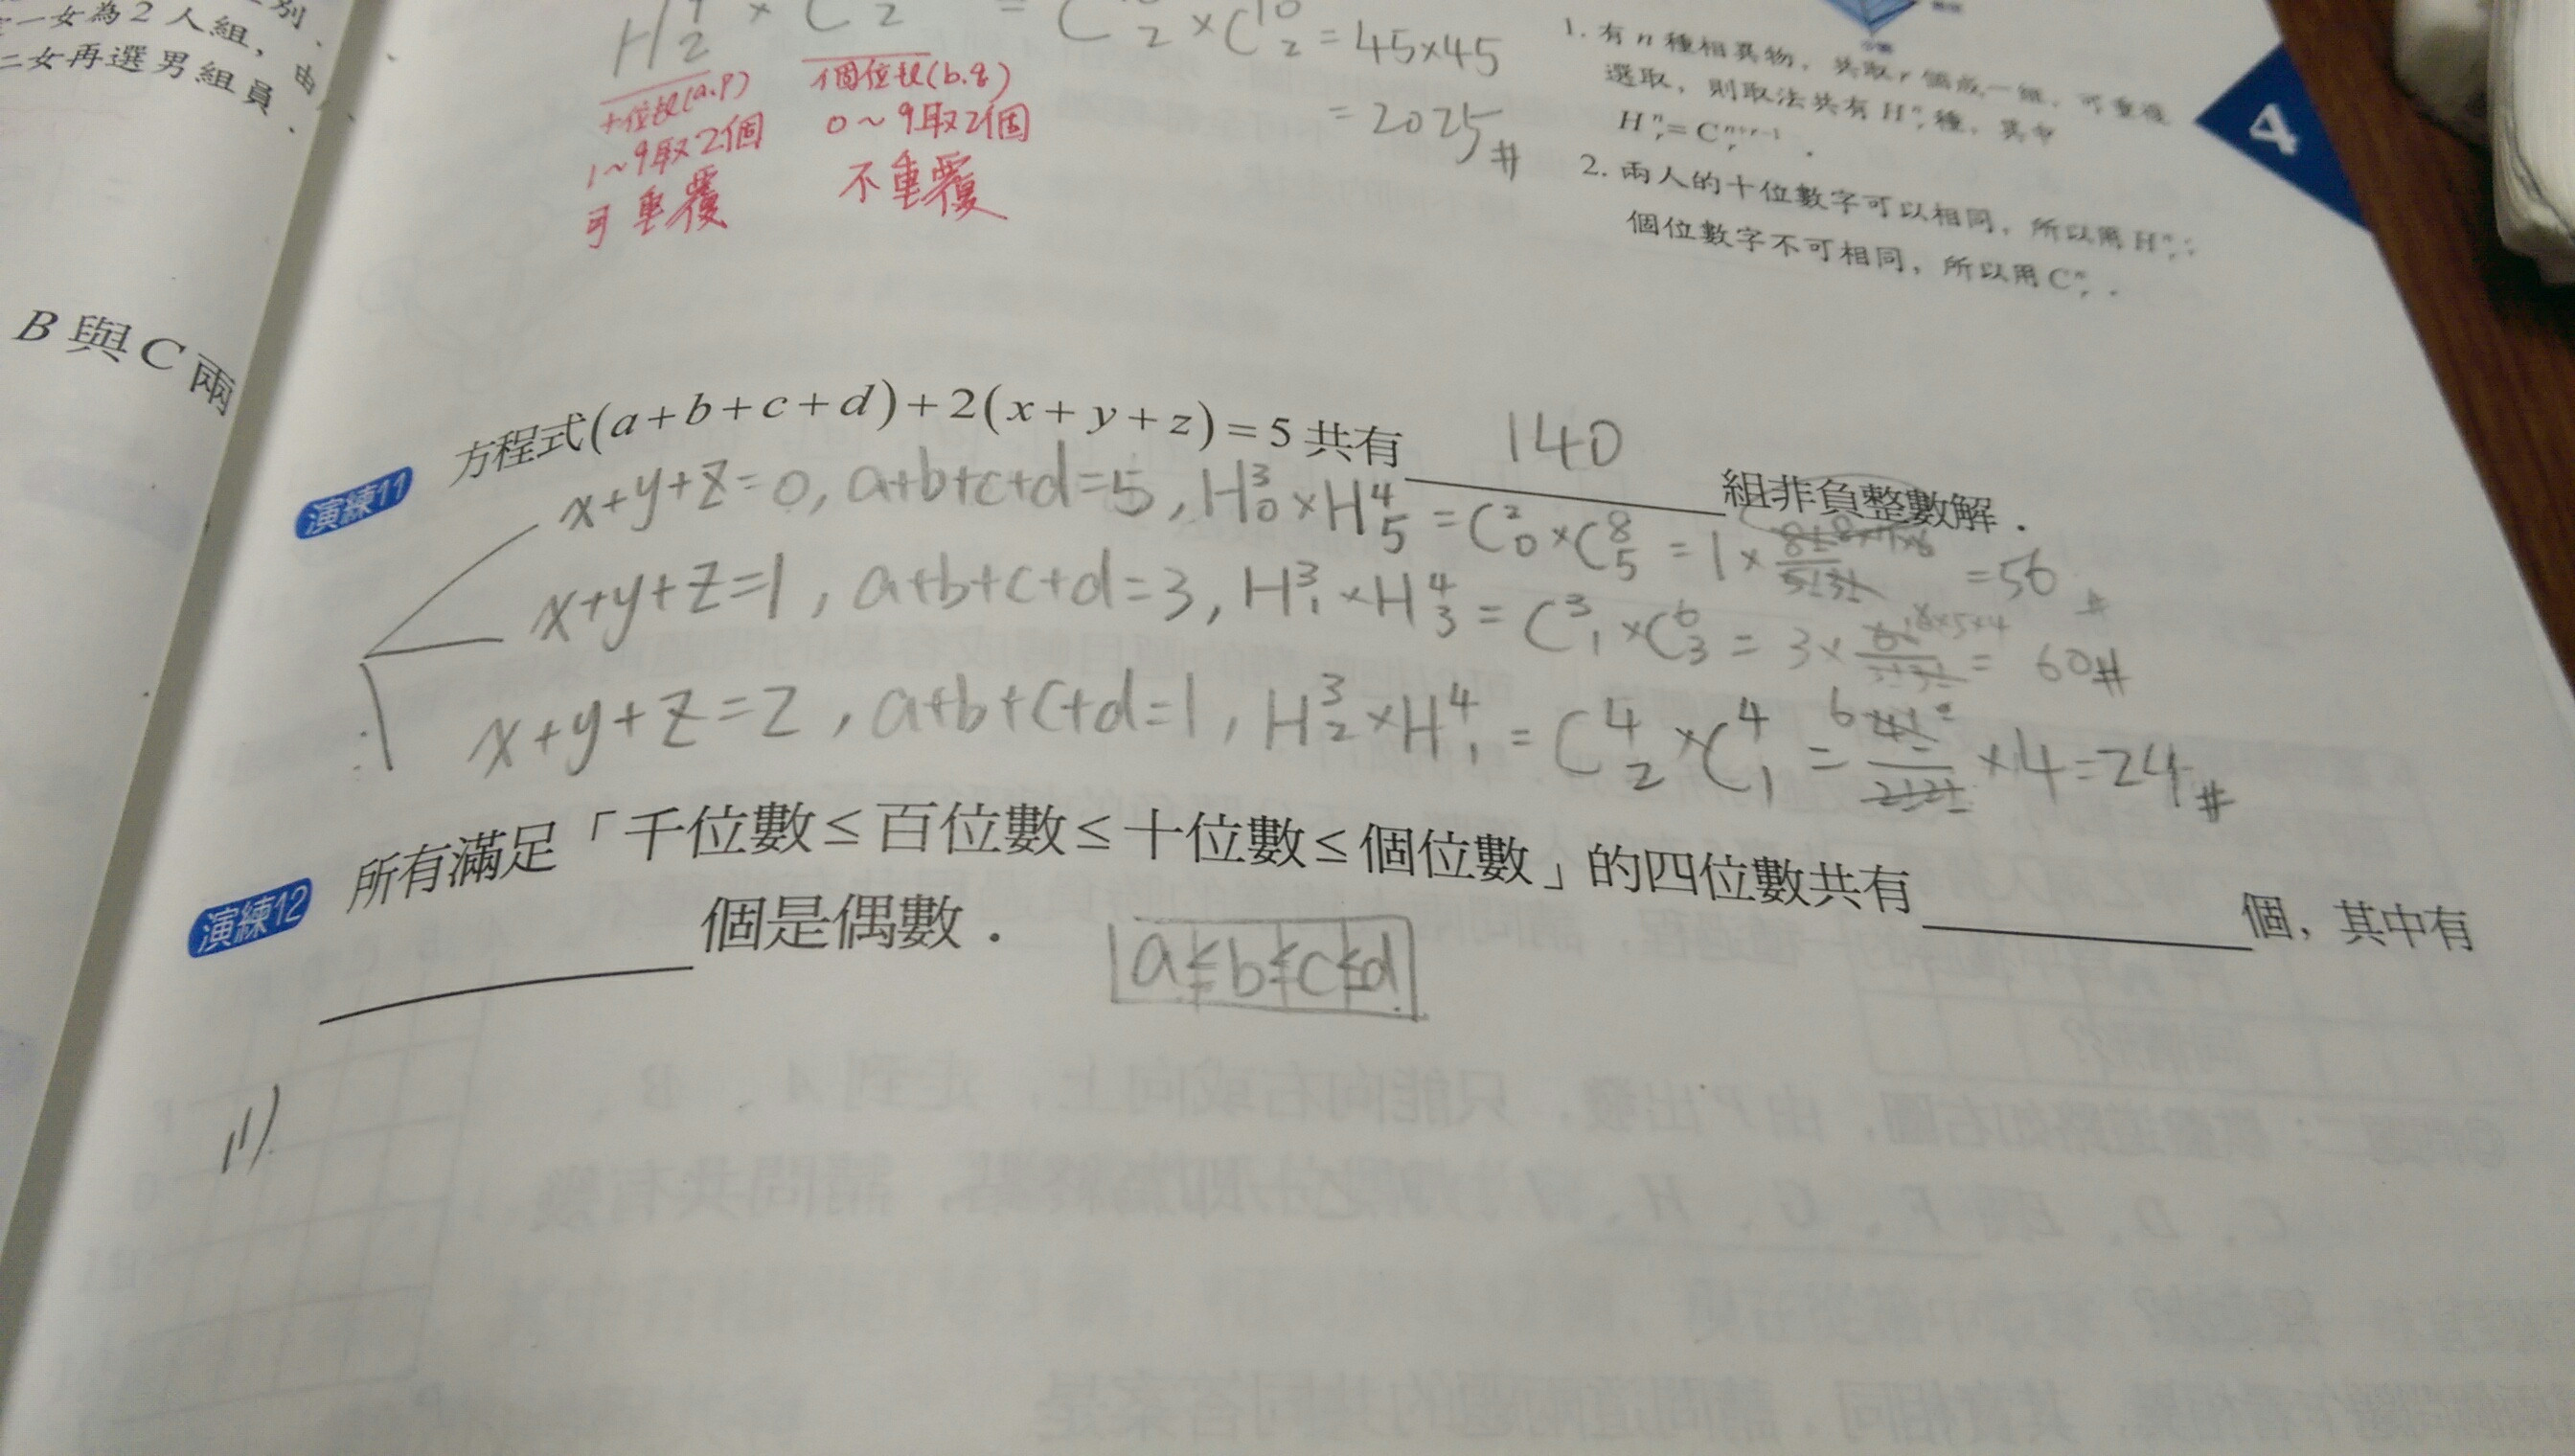 別.
一女為2人組，由
二女再選男組員.
B與C兩
H 2 × C 2 = C 2 × C 10 2 = 45×45
= 2025#
十位數(a.p)
1～9取2個
可重覆
個位數(b.q)
0～9取2個
不重覆
1. 有n種相異物，共取r個為一組，可重複
選取，則取法共有H n r 種，其中
H n r = C n+r-1 r .
2. 兩人的十位數字可以相同，所以用H n r；
個位數字不可相同，所以用C n r .
4
演練11 方程式(a+b+c+d)+2(x+y+z)=5共有 140 組非負整數解.
x+y+z=0, a+b+c+d=5, H 3 0 ×H 4 5 = C 2 0 ×C 8 5 = 1× =56#
x+y+z=1, a+b+c+d=3, H 3 1 ×H 4 3 = C 3 1 ×C 6 3 = 3× = 60#
x+y+z=2, a+b+c+d=1, H 3 2 ×H 4 1 = C 4 2 ×C 4 1 = 6 4!/2!2! ×4=24#
演練12 所有滿足「千位數≤百位數≤十位數≤個位數」的四位數共有 個，其中有
個是偶數.
a≤b≤c≤d
(1)